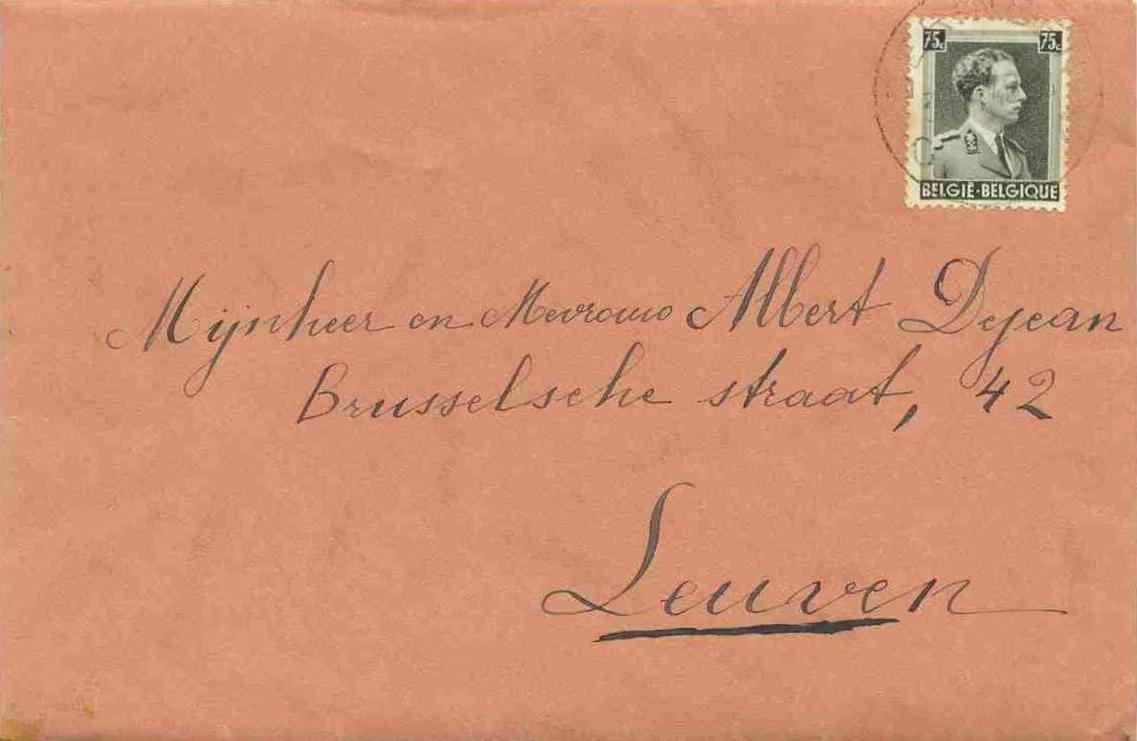 75c 75c
BELGIË-BELGIQUE
Mijnheer en Mevrouw Albert Dejean
Brusselsche straat, 42
Leuven